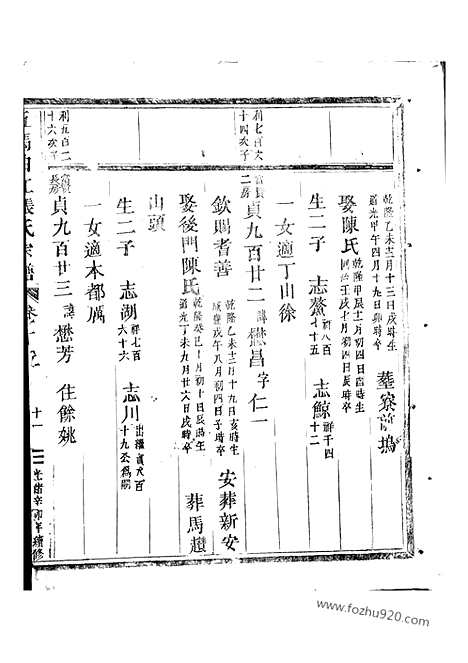 乾隆乙未十二月十三日戌時生
道光甲午四月十九日卯時卒
葬寮前塢
娶陳氏
乾隆甲辰十二月初四日酉時生
戌七月初四日辰時卒
生二子
志鰲
祥八百七十五
志鯨
祥千四十二
一女適丁山徐
利七百六十四次子
二房
貞九百廿二
諱懋昌
字仁一
欽賜耆善
乾隆乙未十二月十九日亥時生
咸豐戊午八月初四日子時卒
安葬新安
娶後門陳氏
乾隆癸巳十月初十日辰時生
道光丁未九月廿六日戌時卒
葬馬趙
山頭
生二子
志湖
祥七百六十六
志川
出繼貞九百十九公為嗣
一女適本都厲
利五百二十六次子
長房
貞九百廿三
諱懋芳
住餘姚
張氏宗譜
十一
光緒辛卯年續修
www.fozhu920.com